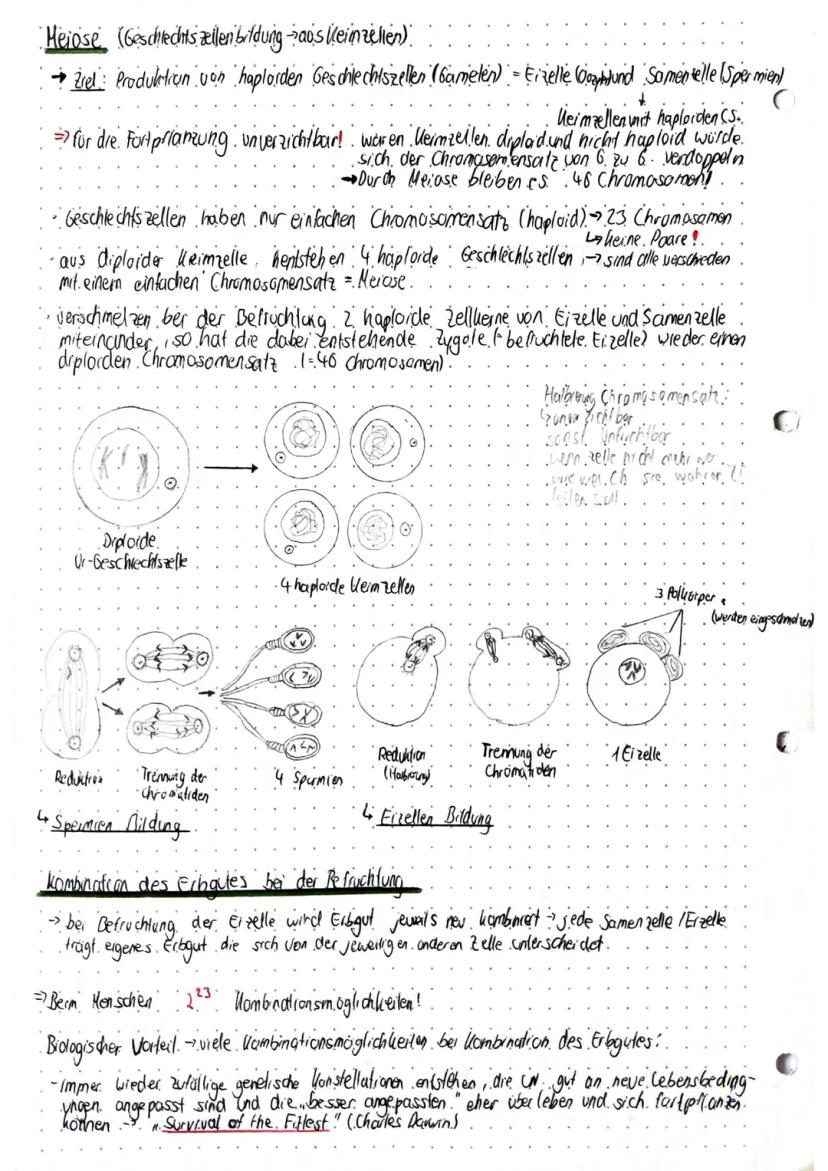 Meiose (Geschlechtszellenbildung → aus Keimzellen)
→ Ziel: Produktion von haploiden Geschlechtszellen (Gameten) = Eizelle und Samenzelle (Spermien)
Keimzellen mit haploiden CS.
⇒ für die Fortpflanzung unverzichtbar! wären Keimzellen diploid und nicht haploid würde
sich der Chromosomensatz von G. zu G. verdoppeln
→ Durch Meiose bleiben es 46 Chromosomen!
· Geschlechtszellen haben nur einfachen Chromosomensatz (haploid) → 23 Chromosomen
↳ keine Paare!
· aus diploider Keimzelle entstehen 4 haploide Geschlechtszellen → sind alle verschieden
mit einem einfachen Chromosomensatz = Meiose
· verschmelzen bei der Befruchtung 2 haploide Zellkerne von Eizelle und Samenzelle
miteinander, so hat die dabei entstehende Zygote (= befruchtete Eizelle) wieder einen
diploiden Chromosomensatz (= 46 Chromosomen)
Halbierung Chromosomensatz:
sonst Unfruchtbar
wenn Zelle nicht mehr
teilen soll
Diploide
Ur-Geschlechtszelle
4 haploide Keimzellen
3 Polkörper
(werden eingeschmolzen)
Reduktion
Trennung der
Chromatiden
4 Spermien
Reduktion
(Halbierung)
Trennung der
Chromatiden
1 Eizelle
↳ Spermien Bildung
↳ Eizellen Bildung
Kombination des Erbgutes bei der Befruchtung
→ bei Befruchtung der Eizelle wird Erbgut jeweils neu kombiniert → jede Samenzelle/Eizelle
trägt eigenes Erbgut die sich von der jeweiligen anderen Zelle unterscheidet.
⇒ Beim Menschen 2²³ Kombinationsmöglichkeiten!
Biologischer Vorteil → viele Kombinationsmöglichkeiten bei Kombination des Erbgutes:
- Immer wieder zufällige genetische Konstellationen entstehen, die gut an neue Lebensbeding-
ungen angepasst sind und die „besser angepassten" eher überleben und sich fortpflanzen
können → „Survival of the Fittest" (Charles Darwin)